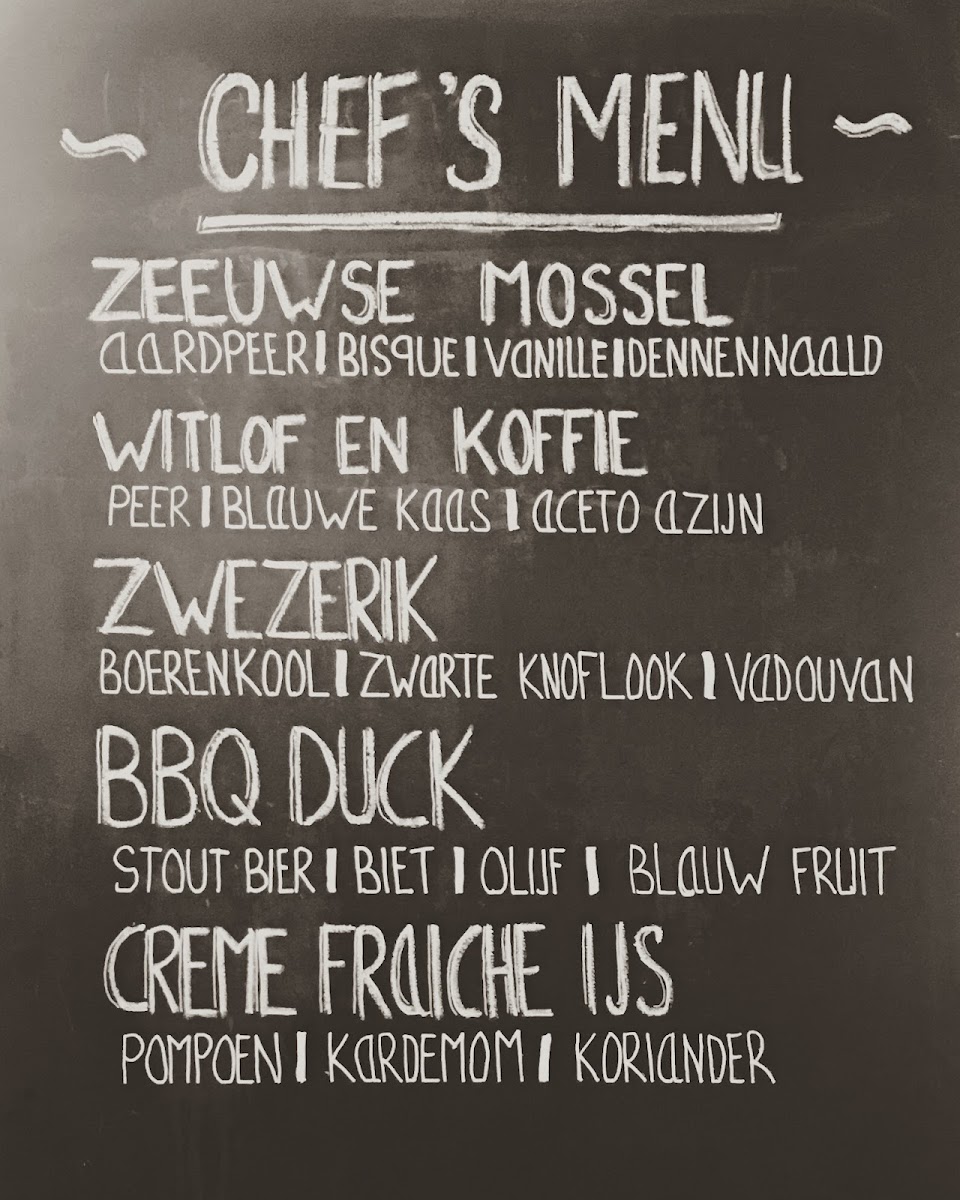 ~ CHEF'S MENU ~
ZEEUWSE MOSSEL
AARDPEER | BISQUE | VANILLE | DENNENNAALD
WITLOF EN KOFFIE
PEER | BLAUWE KAAS | ACETO AZIJN
ZWEZERIK
BOERENKOOL | ZWARTE KNOFLOOK | VADOUVAN
BBQ DUCK
STOUT BIER | BIET | OLIJF | BLAUW FRUIT
CREME FRAICHE IJS
POMPOEN | KARDEMOM | KORIANDER